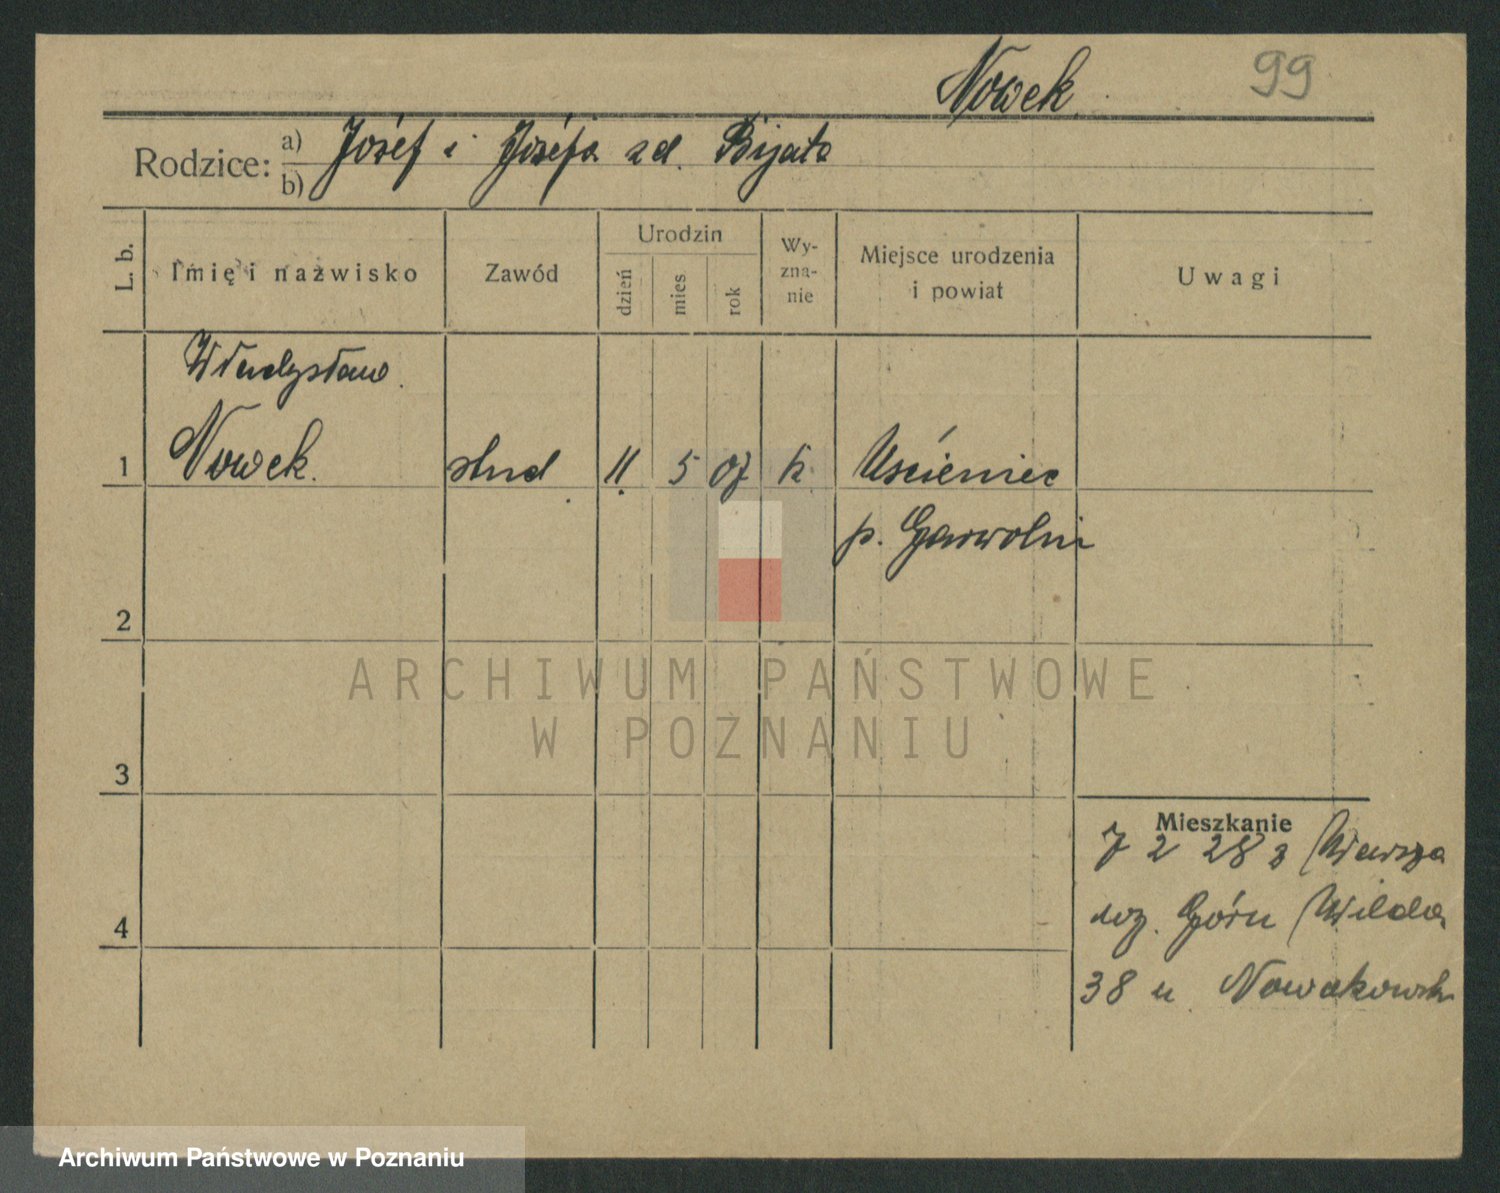 Nowek 99
Rodzice: a) Józef i Józefa zd. Bijata
b)
L. b. Imię i nazwisko Zawód Urodzin dzień mies rok Wy-zna-nie Miejsce urodzenia i powiat Uwagi
Władysław
1 Nowek. stud. 11 5 07 k. Uścieniec
p. Garwolin
2
ARCHIWUM PAŃSTWOWE
W POZNANIU
3
Mieszkanie
7 2 28 z Warsza
Górn Wilda
4
38 u Nowakowsk
Archiwum Państwowe w Poznaniu